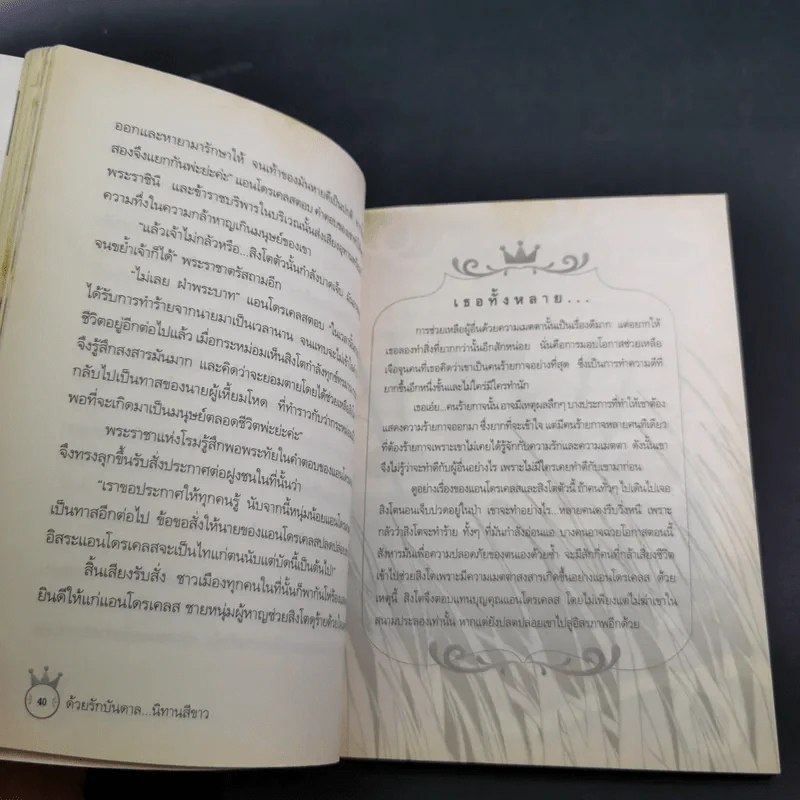 ออกและหายามารักษาให้ จนเท้าของมันหายดีเป็นปกติ
สองจึงแยกกันพ่ะย่ะค่ะ" แอนโดรเคลสตอบ คำตอบของ
พระราชินี และข้าราชบริพารในบริเวณนั้นส่งเสียง
ความทึ่งในความกล้าหาญเกินมนุษย์ของเขา
"แล้วเจ้าไม่กลัวหรือ...สิงโตตัวนั้นกำลังบาดเจ็บ
จนขย้ำเจ้าก็ได้" พระราชาตรัสถามอีก
"ไม่เลย ฝ่าพระบาท" แอนโดรเคลสตอบ "ในเวลานั้น
ได้รับการทำร้ายจากนายมาเป็นเวลานาน จนแทบจะไม่
ชีวิตอยู่อีกต่อไปแล้ว เมื่อกระหม่อมเห็นสิงโตกำลัง
จึงรู้สึกสงสารมันมาก และคิดว่าจะยอมตายโดยได้ช่วยเหลือ
กลับไปเป็นทาสของนายผู้เหี้ยมโหด ที่ทำราวกับว่ากระหม่อม
พอที่จะเกิดมาเป็นมนุษย์ตลอดชีวิตพ่ะย่ะค่ะ"
พระราชาแห่งโรมรู้สึกพอพระทัยในคำตอบของแอนโดรเคลส
จึงทรงลุกขึ้นรับสั่งประกาศต่อฝูงชนในที่นั้นว่า
"เราขอประกาศให้ทุกคนรู้ นับจากนี้หนุ่มน้อยแอนโดรเคลส
เป็นทาสอีกต่อไป ข้อขอสั่งให้นายของแอนโดรเคลสปลดปล่อย
อิสระแอนโดรเคลสจะเป็นไทแก่ตนนับแต่บัดนี้เป็นต้นไป"
สิ้นเสียงรับสั่ง ชาวเมืองทุกคนในที่นั้นก็พากันโห่ร้อง
ยินดีให้แก่แอนโดรเคลส ชายหนุ่มผู้หาญช่วยสิงโตดุร้ายด้วย
40 ด้วยรักบันดาล...นิทานสีขาว
เธอทั้งหลาย...
การช่วยเหลือผู้อื่นด้วยความเมตตานั้นเป็นเรื่องดีมาก แต่อยากให้
เธอลองทำสิ่งที่ยากกว่านั้นอีกสักหน่อย นั่นคือการมอบโอกาสช่วยเหลือ
เจือจุนคนที่เธอคิดว่าเขาเป็นคนร้ายกาจอย่างที่สุด ซึ่งเป็นการทำความดีที่
ยากขึ้นอีกหนึ่งขั้นและไม่ใคร่มีใครทำนัก
เธอเอ๋ย...คนร้ายกาจนั้น อาจมีเหตุผลลึกๆ บางประการที่ทำให้เขาต้อง
แสดงความร้ายกาจออกมา ซึ่งยากที่จะเข้าใจ แต่มีคนร้ายกาจหลายคนทีเดียว
ที่ต้องร้ายกาจเพราะเขาไม่เคยได้รู้จักกับความรักและความเมตตา ดังนั้นเขา
จึงไม่รู้ว่าจะทำดีกับผู้อื่นอย่างไร เพราะไม่มีใครเคยทำดีกับเขามาก่อน
ดูอย่างเรื่องของแอนโดรเคลสและสิงโตตัวนี้ ถ้าคนทั่วๆ ไปเดินไปเจอ
สิงโตนอนเจ็บปวดอยู่ในป่า เขาจะทำอย่างไร...หลายคนคงรีบวิ่งหนี เพราะ
กลัวว่าสิงโตจะทำร้าย ทั้งๆ ที่มันกำลังอ่อนแอ บางคนอาจฉวยโอกาสตอนนี้
สังหารมันเพื่อความปลอดภัยของตนเองด้วยซ้ำ จะมีสักกี่คนที่กล้าเสี่ยงชีวิต
เข้าไปช่วยสิงโตเพราะมีความเมตตาสงสารเกิดขึ้นอย่างแอนโดรเคลส ด้วย
เหตุนี้ สิงโตจึงตอบแทนบุญคุณแอนโดรเคลส โดยไม่เพียงแต่ไม่ฆ่าเขาใน
สนามประลองเท่านั้น หากแต่ยังปลดปล่อยเขาไปสู่อิสรภาพอีกด้วย